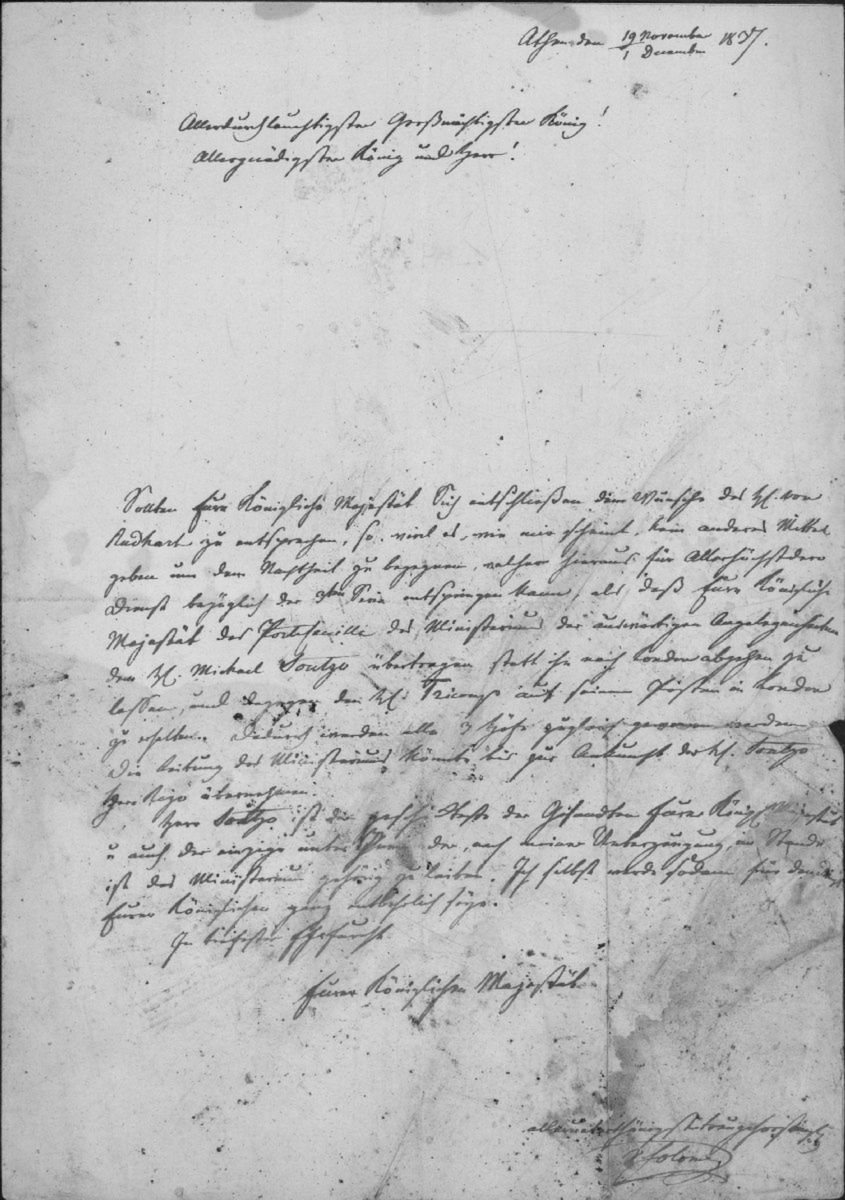 Athen den 19 November / 1 December 1837.
Allerdurchlauchtigster Großmächtigster König!
Allergnädigster König und Herr!
Sollten Eure Königliche Majestät Sich entschließen dem Wunsche des H. von
Rudhart zu entsprechen, so viel es, wie mir scheint, kein anderes Mittel
geben um dem Nachtheil zu begegnen, welcher hieraus für Allerhöchstdero
Dienst bezüglich der entspringen kann, als daß Eure Königliche
Majestät das Portefeuille des Ministeriums der auswärtigen Angelegenheiten
dem H. Michael Soutzo übertragen statt ihn nach London abgehen zu
lassen, und dagegen den H. Tricoupi auf seinem Posten in London
zu erhalten. Dadurch werden alle 3 Höfe zugleich gewonnen werden
Die Leitung des Ministeriums könnte bis zur Ankunft des H. Soutzo
Herr Rizo übernehmen.
Herr Soutzo ist der Beste der Gesandten Eurer Königl. Majestät
u auch der einzige unter Ihnen der, nach meiner Ueberzeugung, im Stande
ist das Ministerium gehörig zu leiten. Ich selbst werde sodann für den
Eurer Königlichen ganz entbehrlich seyn.
In tiefster Ehrfurcht
Eurer Königlichen Majestät
allerunterthänigst treugehorsamster